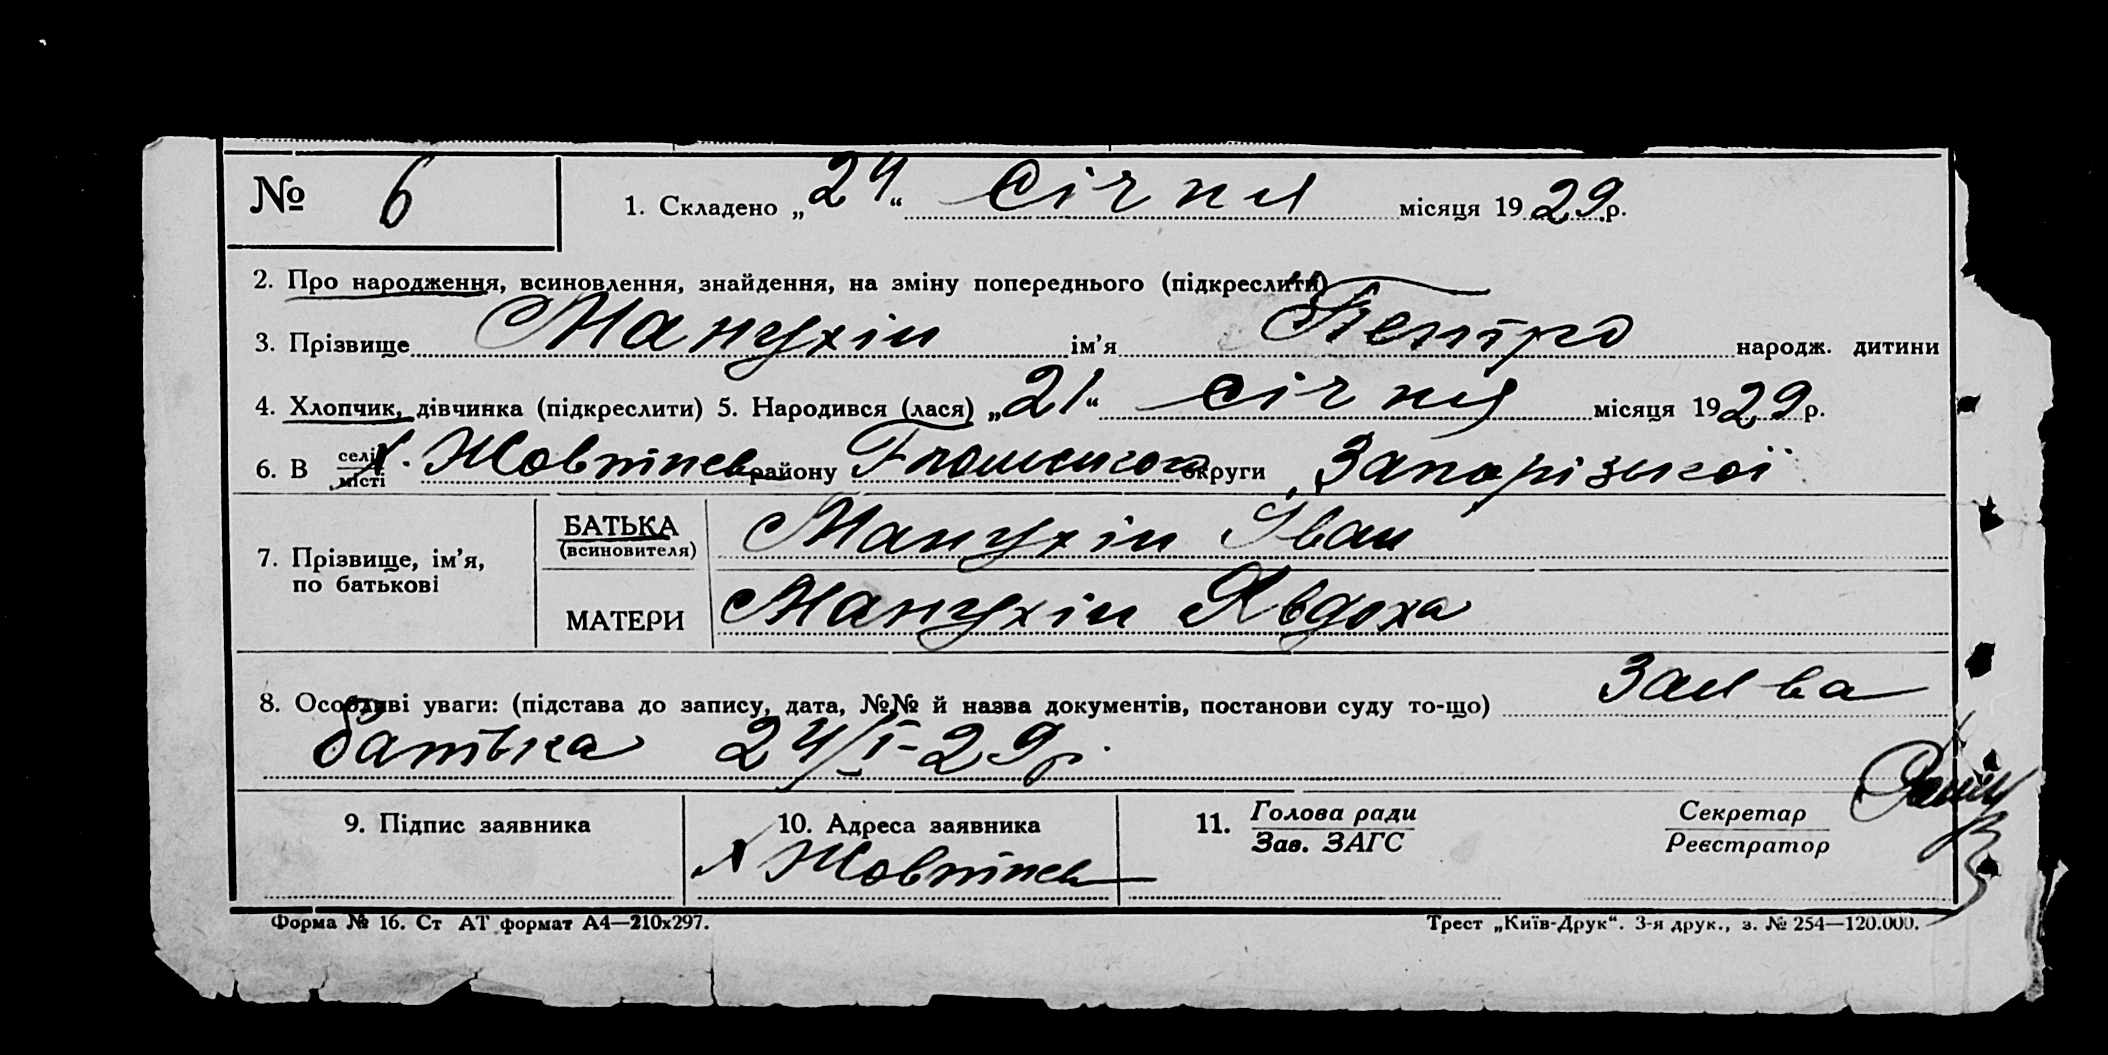 № 6 1. Складено „24“ січня місяця 1929 р.
2. Про народження, всиновлення, знайдення, на зміну попереднього (підкреслити)
3. Прізвище Манухін ім’я Петро народж. дитини
4. Хлопчик, дівчинка (підкреслити) 5. Народився (лася) „21“ січня місяця 1929 р.
6. В селі місті х. Жовтнев району округи Запорізької
7. Прізвище, ім’я, по батькові
БАТЬКА (всиновителя) Манухін Іван
МАТЕРИ Манухін Явдоха
8. Особливі уваги: (підстава до запису, дата, №№ й назва документів, постанови суду то-що) Заява
батька 24/I-29р.
9. Підпис заявника 10. Адреса заявника 11. Голова ради Секретар
Зав. ЗАГС Реєстратор
х Жовтнев
Форма № 16. Ст АТ формат А4—210х297. Трест „Київ-Друк“. 3-я друк., з. № 254—120.000.